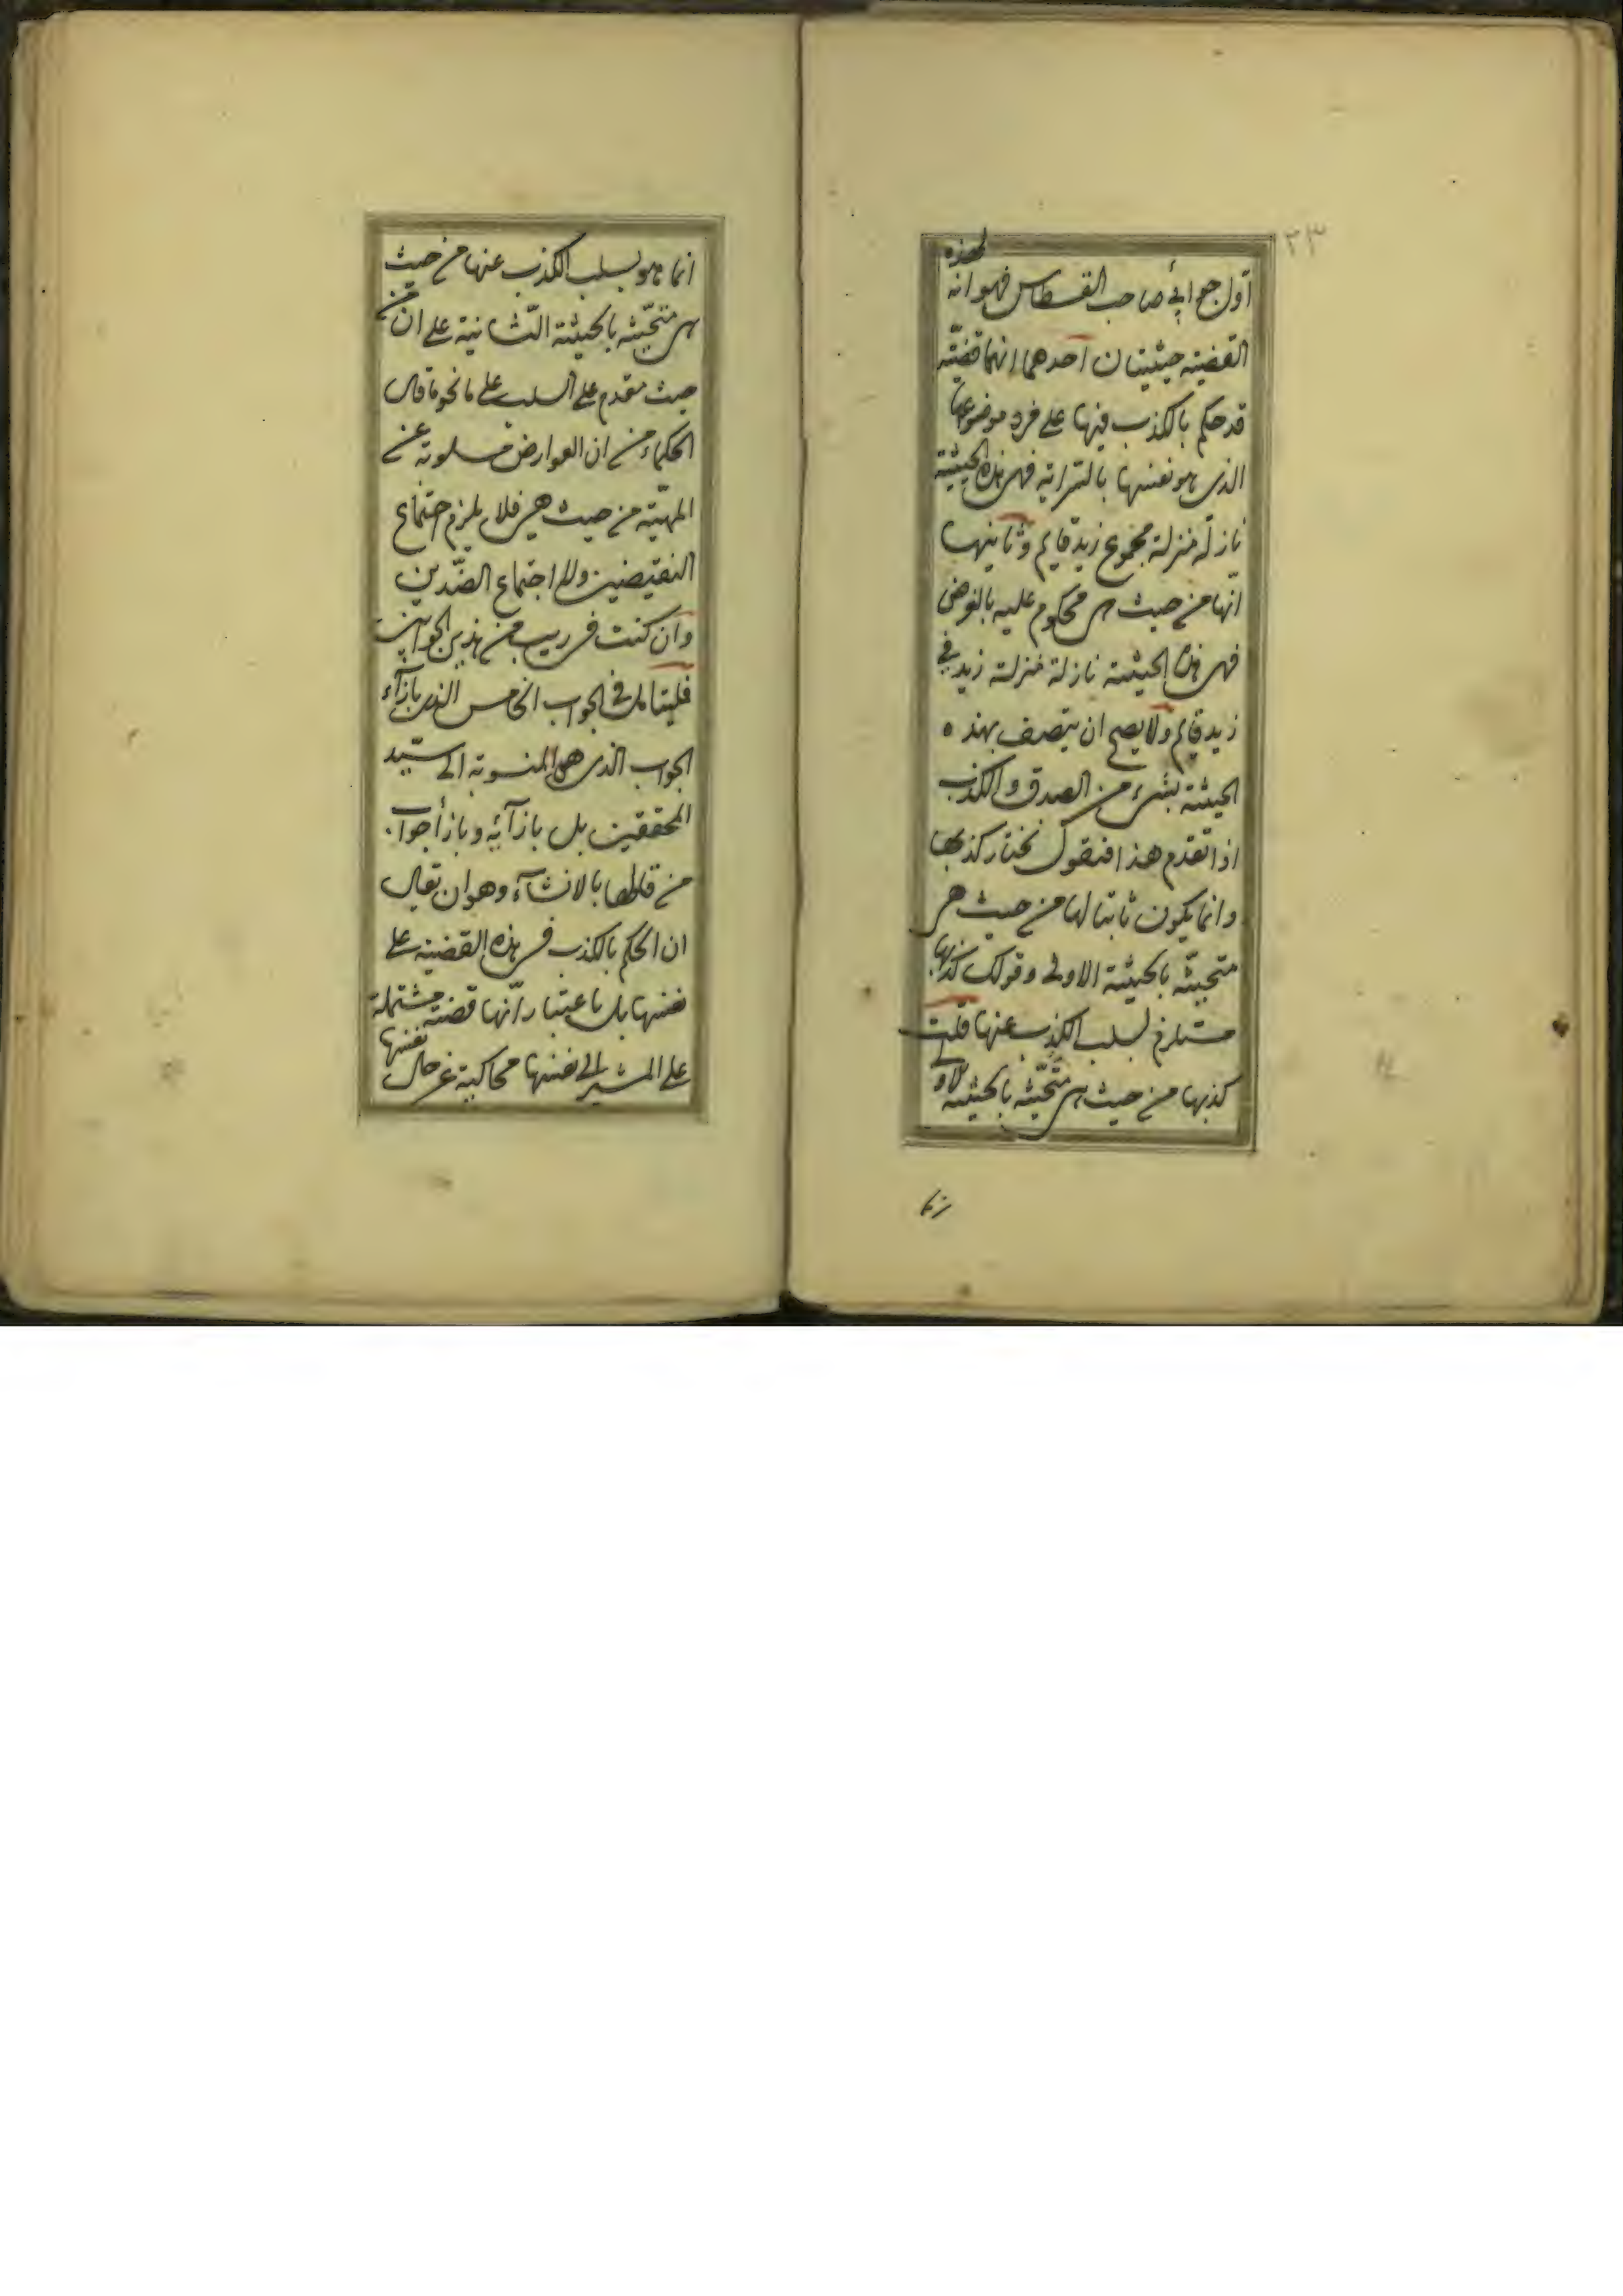 ٢٣
اول جوابي صاحب القسطاس فهو انه لهذه
القضية حيثيتان احدهما انها قضية
قد حكم بالكذب فيها على فرد موضوعها
الذى هو نفسها بالسراية فهى بهذه الحيثية
نازلة منزلة مجموع زيد قايم وثانيها
انها من حيث هى محكوم عليه بالفرض
فهى بهذه الحيثية نازلة منزلة زيد في
زيد قايم ولا يصح ان يتصف بهذه
الحيثية بشىء من الصدق والكذب
اذا تقدم هذا فنقول نختار كذبها
وانما يكون ثابتا لها من حيث هى
متحيثة بالحيثية الاولى وقولك كذبها
مستلزم لسلب الكذب عنها قلت
كذبها من حيث هى متحيثة بالحيثية الاولى
انما
انما هو لسلب الكذب عنها من حيث
هى متحيثة بالحيثية الثانية على ان من
حيث مقدم على السلب على ما نحو ما قال
الحكماء من ان العوارض مسلوبة عن
المهيّة من حيث هى فلا يلزم اجتماع
النقيضين ولا اجتماع الضّدين
وان كنت فى ريب من هذين الجوابين
فليتامل في الجواب الخامس الذى بازآء
الجواب الذى هو المنسوبة الى سيّد
المحققين بل بازآئه وبازأ جواب
من قاطها بالانشآء وهو ان يقال
ان الحكم بالكذب فى هذه القضية على
نفسها بل باعتبار انّها قضية مشتملة
على المشير الى نفسها محاكية عن حال نفسها